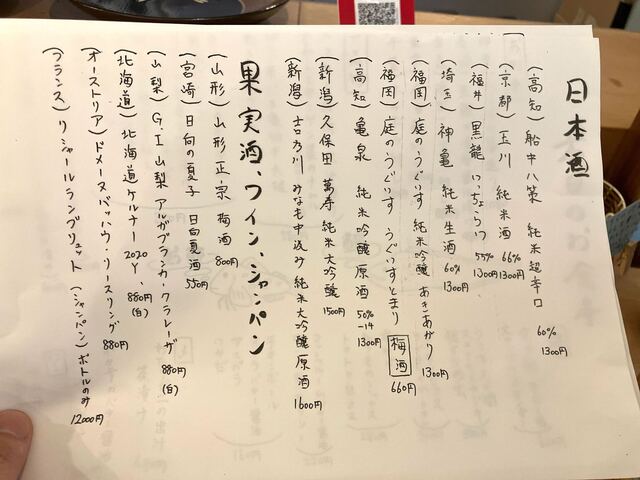 日本酒
(高知) 船中八策 純米超辛口 60% 1300円
(京都) 玉川 純米酒 66% 1300円
(福井) 黒龍 いっちょらい 55% 1300円
(埼玉) 神亀 純米生酒 60% 1300円
(福岡) 庭のうぐいす 純米吟醸 あきあがり 1300円
(福岡) 庭のうぐいす うぐいすとまり 梅酒 660円
(高知) 亀泉 純米吟醸原酒 50% -14 1300円
(新潟) 久保田 萬寿 純米大吟醸 1500円
(新潟) 吉乃川 みなも中汲み 純米大吟醸原酒 1600円
果実酒、ワイン、シャンパン
(山形) 山形正宗 梅酒 800円
(宮崎) 日向の夏子 日向夏酒 550円
(山梨) G.I山梨 アルガブランカ・クラレーザ 880円 (白)
(北海道) 北海道ケルナー2020Y、 880円 (白)
(オーストリア) ドメーヌバッハウ・リースリング 880円
(フランス) リシャールランブリュット (シャンパン) ボトルのみ 12000円